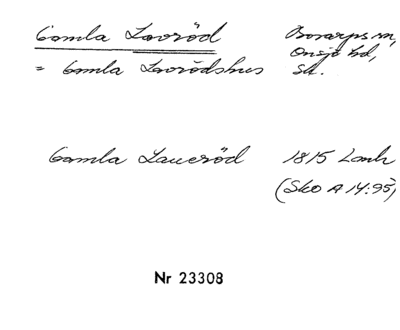 Gamla Lovröd Bosarps sn,
= Gamla Lovrödshus Onsjö hd,
Sk.
Gamla Laueröd 1815 Lanh
(Sko A 14:95)
Nr 23308